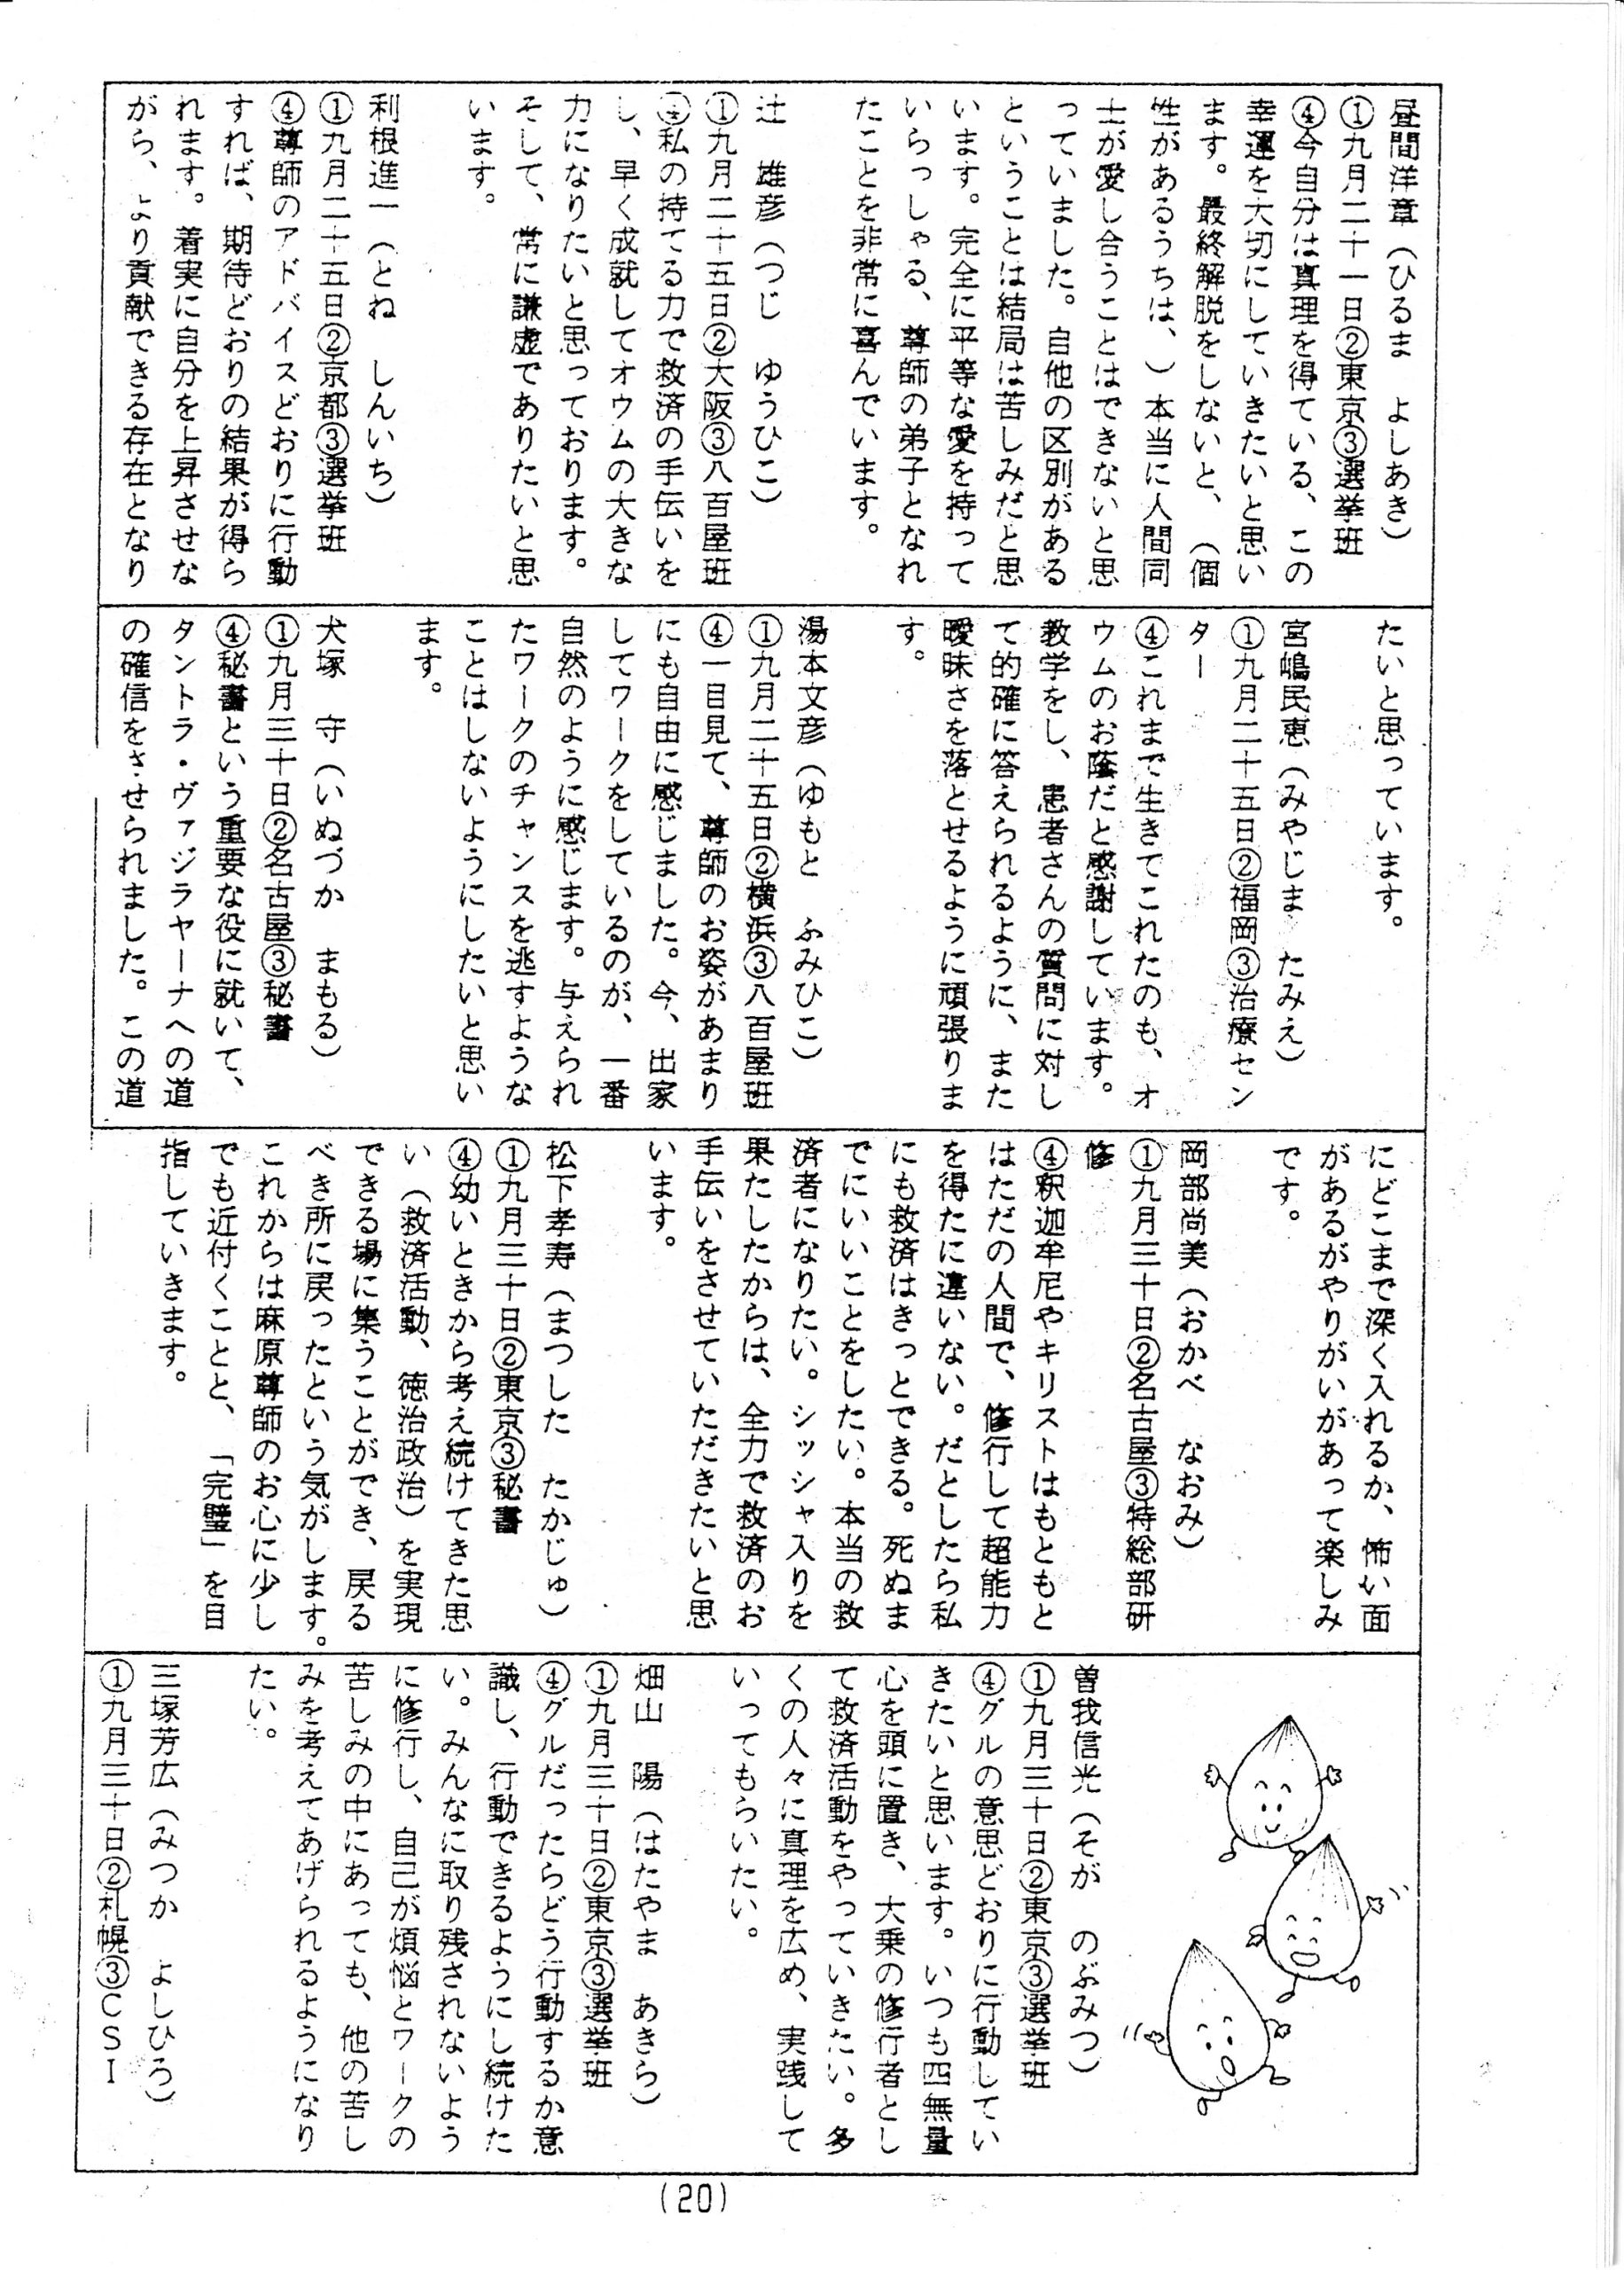 昼間洋章（ひるま　よしあき）
①九月二十一日②東京③選挙班
④今自分は真理を得ている、この
幸運を大切にしていきたいと思い
ます。最終解脱をしないと、（個
性があるうちは、）本当に人間同
士が愛し合うことはできないと思
っていました。自他の区別がある
ということは結局は苦しみだと思
います。完全に平等な愛を持って
いらっしゃる、尊師の弟子となれ
たことを非常に喜んでいます。
辻　雄彦（つじ　ゆうひこ）
①九月二十五日②大阪③八百屋班
④私の持てる力で救済の手伝いを
し、早く成就してオウムの大きな
力になりたいと思っております。
そして、常に謙虚でありたいと思
います。
利根進一（とね　しんいち）
①九月二十五日②京都③選挙班
④尊師のアドバイスどおりに行動
すれば、期待どおりの結果が得ら
れます。着実に自分を上昇させな
がら、より貢献できる存在となり
たいと思っています。
宮嶋民恵（みやじま　たみえ）
①九月二十五日②福岡③治療セン
ター
④これまで生きてこれたのも、オ
ウムのお蔭だと感謝しています。
教学をし、患者さんの質問に対し
て的確に答えられるように、また
曖昧さを落とせるように頑張りま
す。
湯本文彦（ゆもと　ふみひこ）
①九月二十五日②横浜③八百屋班
④一目見て、尊師のお姿があまり
にも自由に感じました。今、出家
してワークをしているのが、一番
自然のように感じます。与えられ
たワークのチャンスを逃すような
ことはしないようにしたいと思い
ます。
犬塚　守（いぬづか　まもる）
①九月三十日②名古屋③秘書
④秘書という重要な役に就いて、
タントラ・ヴァジラヤーナへの道
の確信をさせられました。この道
にどこまで深く入れるか、怖い面
があるがやりがいがあって楽しみ
です。
岡部尚美（おかべ　なおみ）
①九月三十日②名古屋③特総部研
修
④釈迦牟尼やキリストはもともと
はただの人間で、修行して超能力
を得たに違いない。だとしたら私
にも救済はきっとできる。死ぬま
でにいいことをしたい。本当の救
済者になりたい。シッシャ入りを
果たしたからは、全力で救済のお
手伝いをさせていただきたいと思
います。
松下孝寿（まつした　たかじゅ）
①九月三十日②東京③秘書
④幼いときから考え続けてきた思
い（救済活動、徳治政治）を実現
できる場に集うことができ、戻る
べき所に戻ったという気がします。
これからは麻原尊師のお心に少し
でも近付くことと、「完璧」を目
指していきます。
曽我信光（そが　のぶみつ）
①九月三十日②東京③選挙班
④グルの意思どおりに行動してい
きたいと思います。いつも四無量
心を頭に置き、大乗の修行者とし
て救済活動をやっていきたい。多
くの人々に真理を広め、実践して
いってもらいたい。
畑山　陽（はたやま　あきら）
①九月三十日②東京③選挙班
④グルだったらどう行動するか意
識し、行動できるようにし続けた
い。みんなに取り残されないよう
に修行し、自己が煩悩とワークの
苦しみの中にあっても、他の苦し
みを考えてあげられるようになり
たい。
三塚芳広（みつか　よしひろ）
①九月三十日②札幌③ＣＳＩ
(20)